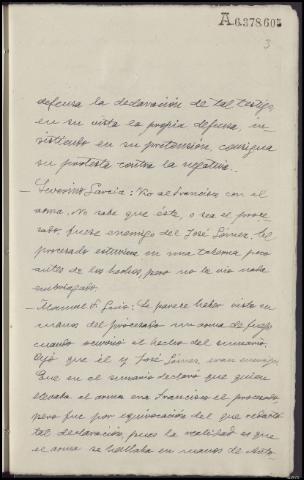 A.6.378.605
3
defensa la declaración de tal testigo,
en su vista la propia defensa, in
sistiendo en su pretensión, consigna
su protesta contra la negativa.
— Severino García: Vio al Francisco con el
arma. No sabe que éste, o sea el proce
sado, fuese enemigo del José Gómez. El
procesado estuviera en una taberna poco
antes de los hechos, pero no le vio nada
embriagado.
— Manuel F. : Le parece haber visto en
manos del procesado un arma de fuego
cuando ocurrió el hecho del sumario.
Oyó que él y José Gómez eran enemigos
Que en el sumario declaró que quien
llevaba el arma era Francisco el procesado
pero fue por equivocación del que redactó
tal declaración, pues la realidad es que
el arma se hallaba en manos de Anto-